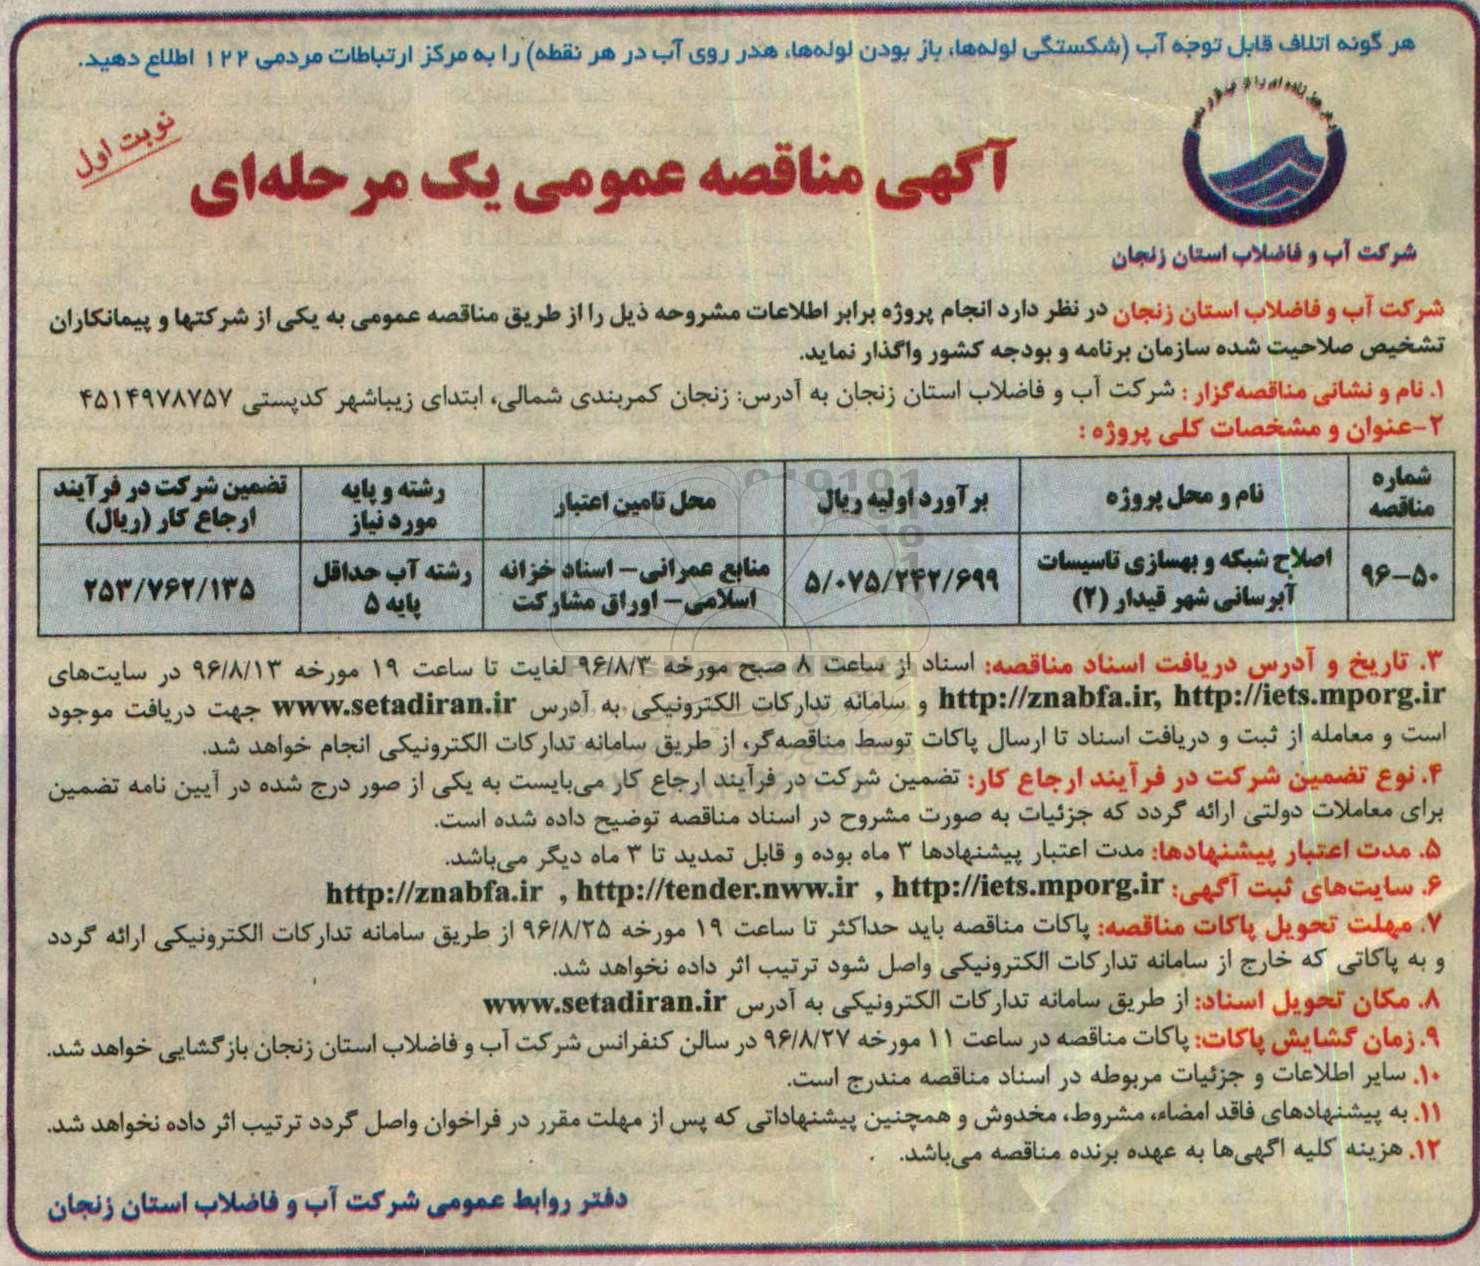 هر گونه اتلاف قابل توجه آب (شکستگی لوله‌ها، باز بودن لوله‌ها، هدر روی آب در هر نقطه) را به مرکز ارتباطات مردمی ۱۲۲ اطلاع دهید.
نوبت اول
آگهی مناقصه عمومی یک مرحله‌ای
شرکت آب و فاضلاب استان زنجان
شرکت آب و فاضلاب استان زنجان در نظر دارد انجام پروژه برابر اطلاعات مشروحه ذیل را از طریق مناقصه عمومی به یکی از شرکتها و پیمانکاران
تشخیص صلاحیت شده سازمان برنامه و بودجه کشور واگذار نماید.
۱. نام و نشانی مناقصه‌گزار : شرکت آب و فاضلاب استان زنجان به آدرس: زنجان کمربندی شمالی، ابتدای زیباشهر کدپستی ۴۵۱۴۹۷۸۷۵۷
۲-عنوان و مشخصات کلی پروژه :
شماره مناقصه | نام و محل پروژه | برآورد اولیه ریال | محل تامین اعتبار | رشته و پایه مورد نیاز | تضمین شرکت در فرآیند ارجاع کار (ریال)
۹۶-۵۰ | اصلاح شبکه و بهسازی تاسیسات آبرسانی شهر قیدار (۲) | ۵/۰۷۵/۲۴۲/۶۹۹ | منابع عمرانی- اسناد خزانه اسلامی- اوراق مشارکت | رشته آب حداقل پایه ۵ | ۲۵۳/۷۶۲/۱۳۵
۳. تاریخ و آدرس دریافت اسناد مناقصه: اسناد از ساعت ۸ صبح مورخه ۹۶/۸/۳ لغایت تا ساعت ۱۹ مورخه ۹۶/۸/۱۳ در سایت‌های
http://znabfa.ir, http://iets.mporg.ir و سامانه تدارکات الکترونیکی به آدرس www.setadiran.ir جهت دریافت موجود
است و معامله از ثبت و دریافت اسناد تا ارسال پاکات توسط مناقصه‌گر، از طریق سامانه تدارکات الکترونیکی انجام خواهد شد.
۴. نوع تضمین شرکت در فرآیند ارجاع کار: تضمین شرکت در فرآیند ارجاع کار می‌بایست به یکی از صور درج شده در آیین نامه تضمین
برای معاملات دولتی ارائه گردد که جزئیات به صورت مشروح در اسناد مناقصه توضیح داده شده است.
۵. مدت اعتبار پیشنهادها: مدت اعتبار پیشنهادها ۳ ماه بوده و قابل تمدید تا ۳ ماه دیگر می‌باشد.
۶. سایت‌های ثبت آگهی: http://znabfa.ir , http://tender.nww.ir , http://iets.mporg.ir
۷. مهلت تحویل پاکات مناقصه: پاکات مناقصه باید حداکثر تا ساعت ۱۹ مورخه ۹۶/۸/۲۵ از طریق سامانه تدارکات الکترونیکی ارائه گردد
و به پاکاتی که خارج از سامانه تدارکات الکترونیکی واصل شود ترتیب اثر داده نخواهد شد.
۸. مکان تحویل اسناد: از طریق سامانه تدارکات الکترونیکی به آدرس www.setadiran.ir
۹. زمان گشایش پاکات: پاکات مناقصه در ساعت ۱۱ مورخه ۹۶/۸/۲۷ در سالن کنفرانس شرکت آب و فاضلاب استان زنجان بازگشایی خواهد شد.
۱۰. سایر اطلاعات و جزئیات مربوطه در اسناد مناقصه مندرج است.
۱۱. به پیشنهادهای فاقد امضاء، مشروط، مخدوش و همچنین پیشنهاداتی که پس از مهلت مقرر در فراخوان واصل گردد ترتیب اثر داده نخواهد شد.
۱۲. هزینه کلیه اگهی‌ها به عهده برنده مناقصه می‌باشد.
دفتر روابط عمومی شرکت آب و فاضلاب استان زنجان